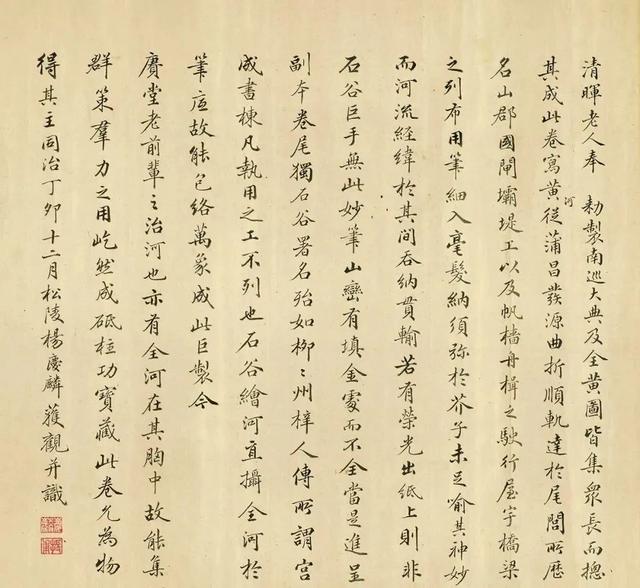 清暉老人奉　勅製南巡大典及全黃圖皆集衆長而揔
其成此卷寫黃河從蒲昌發源曲折順軌達於尾閭所歷
名山郡國閘壩堤工以及帆檣舟楫之駛行屋宇橋梁
之列布用筆細入毫髮納須弥於芥子未足喻其神妙
而河流經緯於其間吞納貫輸若有榮光出紙上則非
石谷巨手無此妙筆山巒有填金處而不全當是進呈
副本卷尾獨石谷署名殆如柳柳州梓人傳所謂宮
成書棟凡執用之工不列也石谷繪河直攝全河於
筆底故能包絡萬象成此巨製今
賡堂老前輩之治河也亦有全河在其胸中故能集
群策羣力之用屹然成砥柱功寶藏此卷允為物
得其主同治丁卯十二月松陵楊慶麟獲觀并識